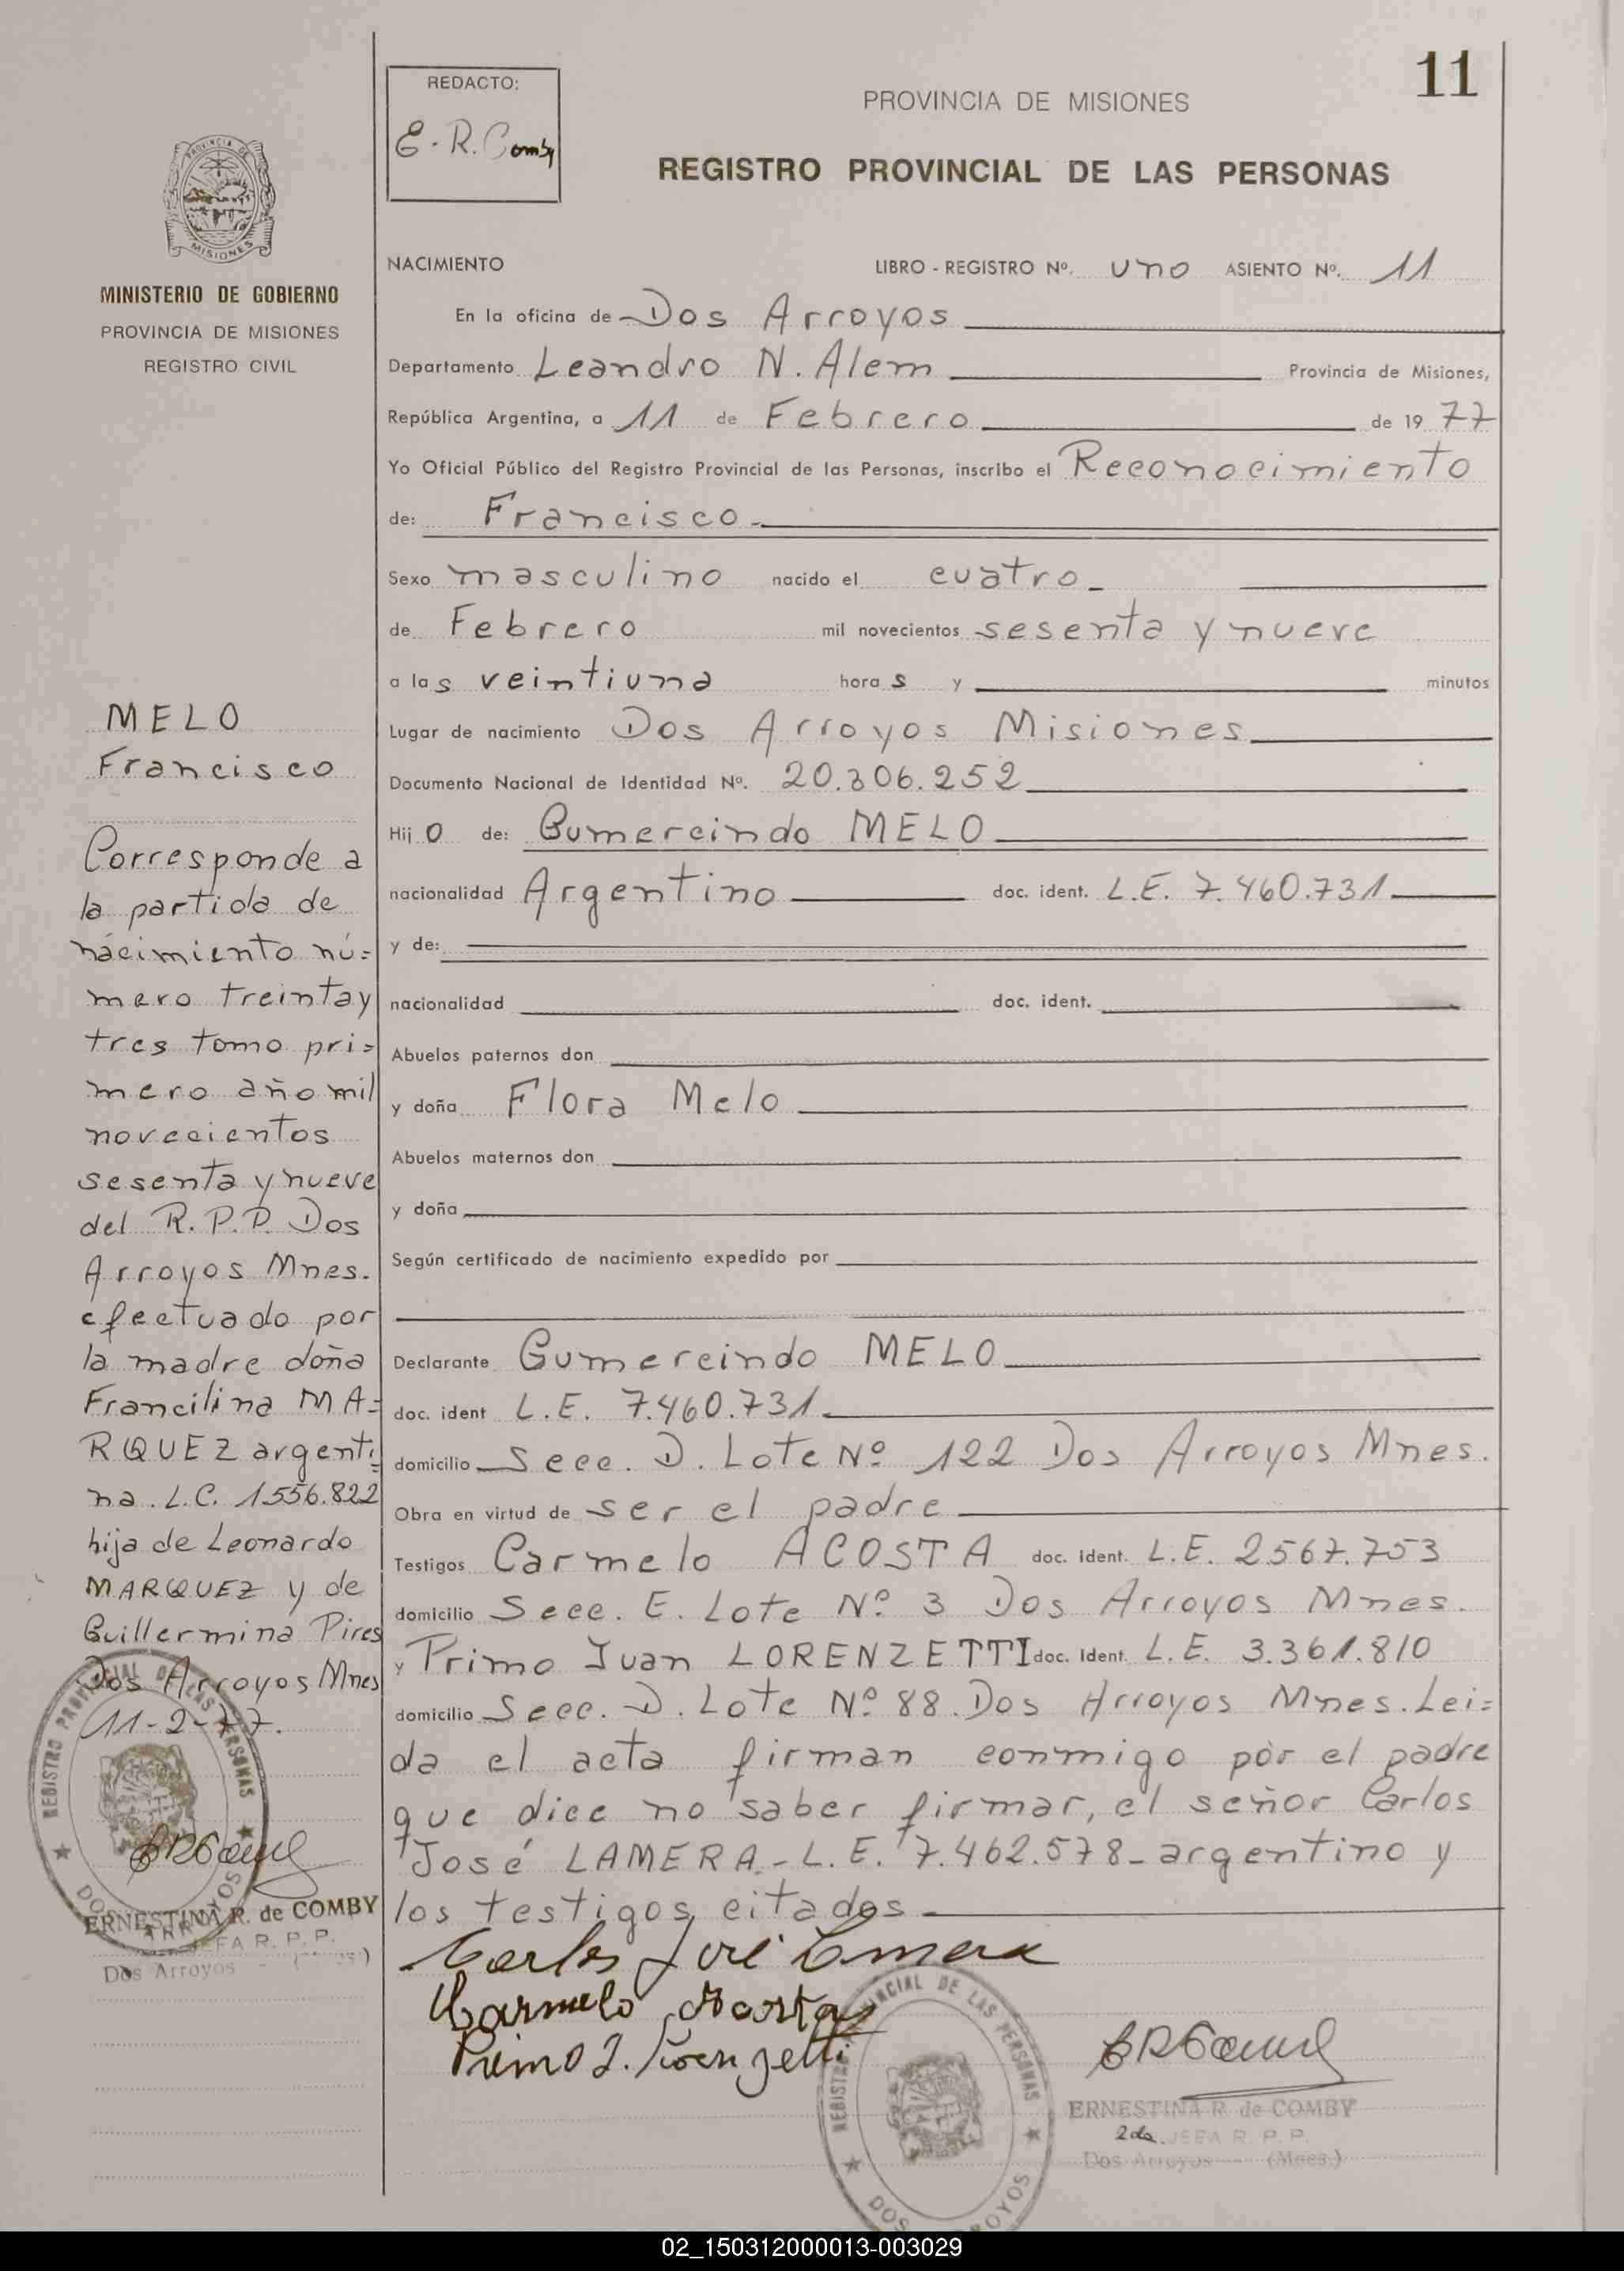 11
REDACTO:
E. R. Comby
PROVINCIA DE MISIONES
REGISTRO PROVINCIAL DE LAS PERSONAS
PROVINCIA DE
MISIONES
MINISTERIO DE GOBIERNO
PROVINCIA DE MISIONES
REGISTRO CIVIL
NACIMIENTO LIBRO - REGISTRO Nº. uno ASIENTO Nº. 11
En la oficina de Dos Arroyos
Departamento Leandro N. Alem Provincia de Misiones,
República Argentina, a 11 de Febrero de 19 77
Yo Oficial Público del Registro Provincial de las Personas, inscribo el Reconocimiento
de: Francisco
Sexo masculino nacido el cuatro
de Febrero mil novecientos sesenta y nueve
a las veintiuna horas y minutos
Lugar de nacimiento Dos Arroyos Misiones
Documento Nacional de Identidad Nº. 20.306.252
Hijo de: Gumercindo MELO
nacionalidad Argentino doc. ident. L.E. 7.460.731
y de:
nacionalidad doc. ident.
Abuelos paternos don
y doña Flora Melo
Abuelos maternos don
y doña
Según certificado de nacimiento expedido por
Declarante Gumercindo MELO
doc. ident L.E. 7.460.731
domicilio Secc. D. Lote Nº 122 Dos Arroyos Mnes.
Obra en virtud de ser el padre
Testigos Carmelo ACOSTA doc. Ident. L.E. 2567.753
domicilio Secc. E. Lote Nº 3 Dos Arroyos Mnes.
y Primo Juan LORENZETTI doc. Ident. L.E. 3.361.810
domicilio Secc. D. Lote Nº 88. Dos Arroyos Mnes. Lei=
da el acta firman conmigo pór el padre
que dice no saber firmar, el señor Carlos
José LAMERA.- L.E. 7.462.578- argentino y
los testigos citados
Carlos José Lamera
Carmelo Acosta
Primo J. Lorenzetti
REGISTRO PROVINCIAL DE LAS PERSONAS
DOS ARROYOS
ERNESTINA R. de COMBY
2da. JEFA R. P. P.
Dos Arroyos - (Mnes.)
MELO
Francisco
Corresponde a
la partida de
nacimiento nú=
mero treinta y
tres tomo pri=
mero año mil
novecientos
sesenta y nueve
del R. P. P. Dos
Arroyos Mnes.
efectuado por
la madre doña
Francilina MA=
RQUEZ argenti=
na. L.C. 1556.822
hija de Leonardo
MARQUEZ y de
Guillermina Pires
Dos Arroyos Mnes
11-2-77.
REGISTRO PROVINCIAL DE LAS PERSONAS
DOS ARROYOS
ERNESTINA R. de COMBY
JEFA R. P. P.
Dos Arroyos -
02_150312000013-003029